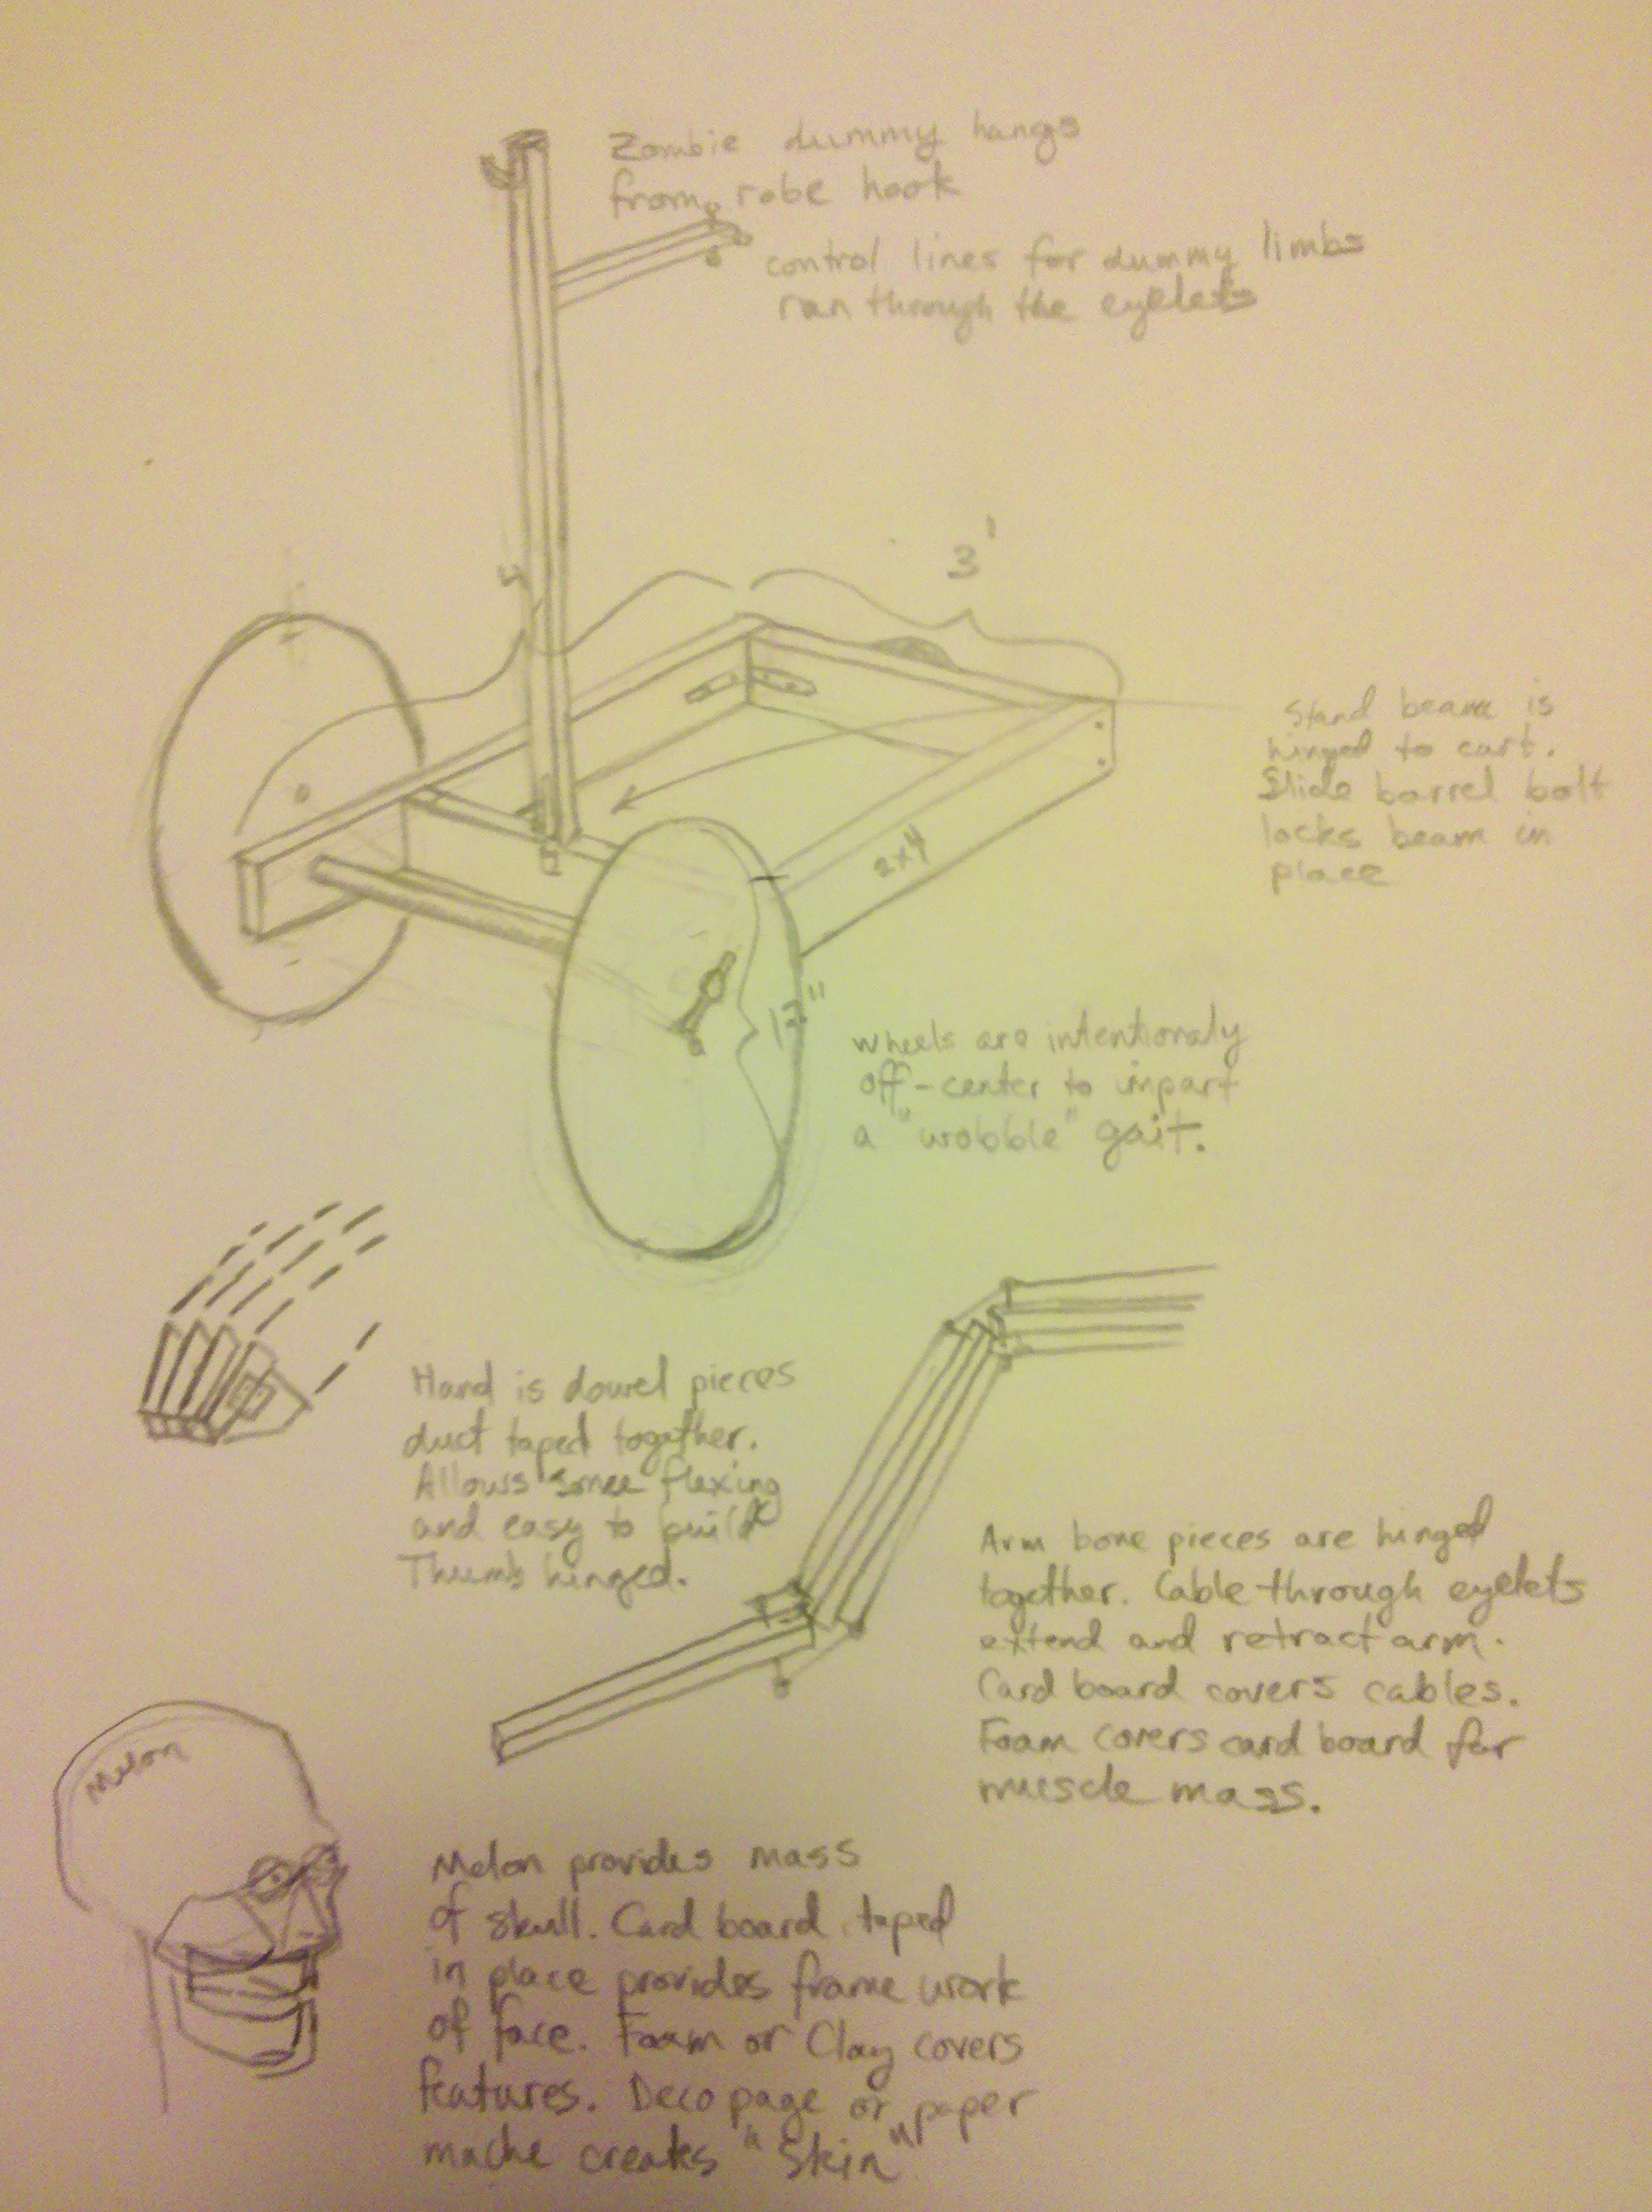 Zombie dummy hangs
from robe hook
control lines for dummy limbs
run through the eyelets
3'
Stand beam is
hinged to cart.
Slide barrel bolt
locks beam in
place
2x4
12"
wheels are intentionaly
off-center to impart
a "wobble" gait.
Hand is dowel pieces
duct taped together.
Allows some flexing
and easy to build
Thumb hinged.
Arm bone pieces are hinged
together. Cable through eyelets
extend and retract arm.
Card board covers cables.
Foam covers card board for
muscle mass.
Melon
Melon provides mass
of skull. Card board taped
in place provides frame work
of face. Foam or Clay covers
features. Deco page or paper
mache creates "Skin"